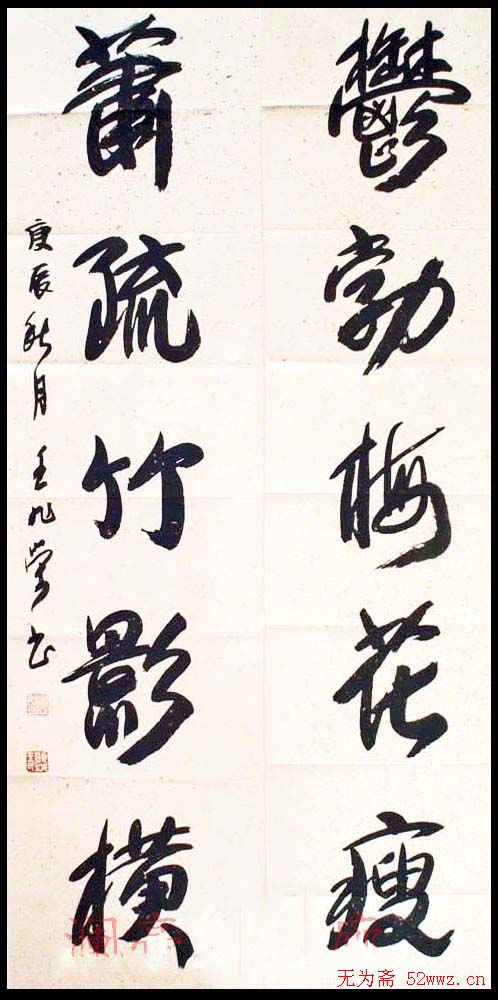 鬱勃梅花瘦
蕭疏竹影橫
庚辰秋月 王 书
无为斋 52wwz.cn